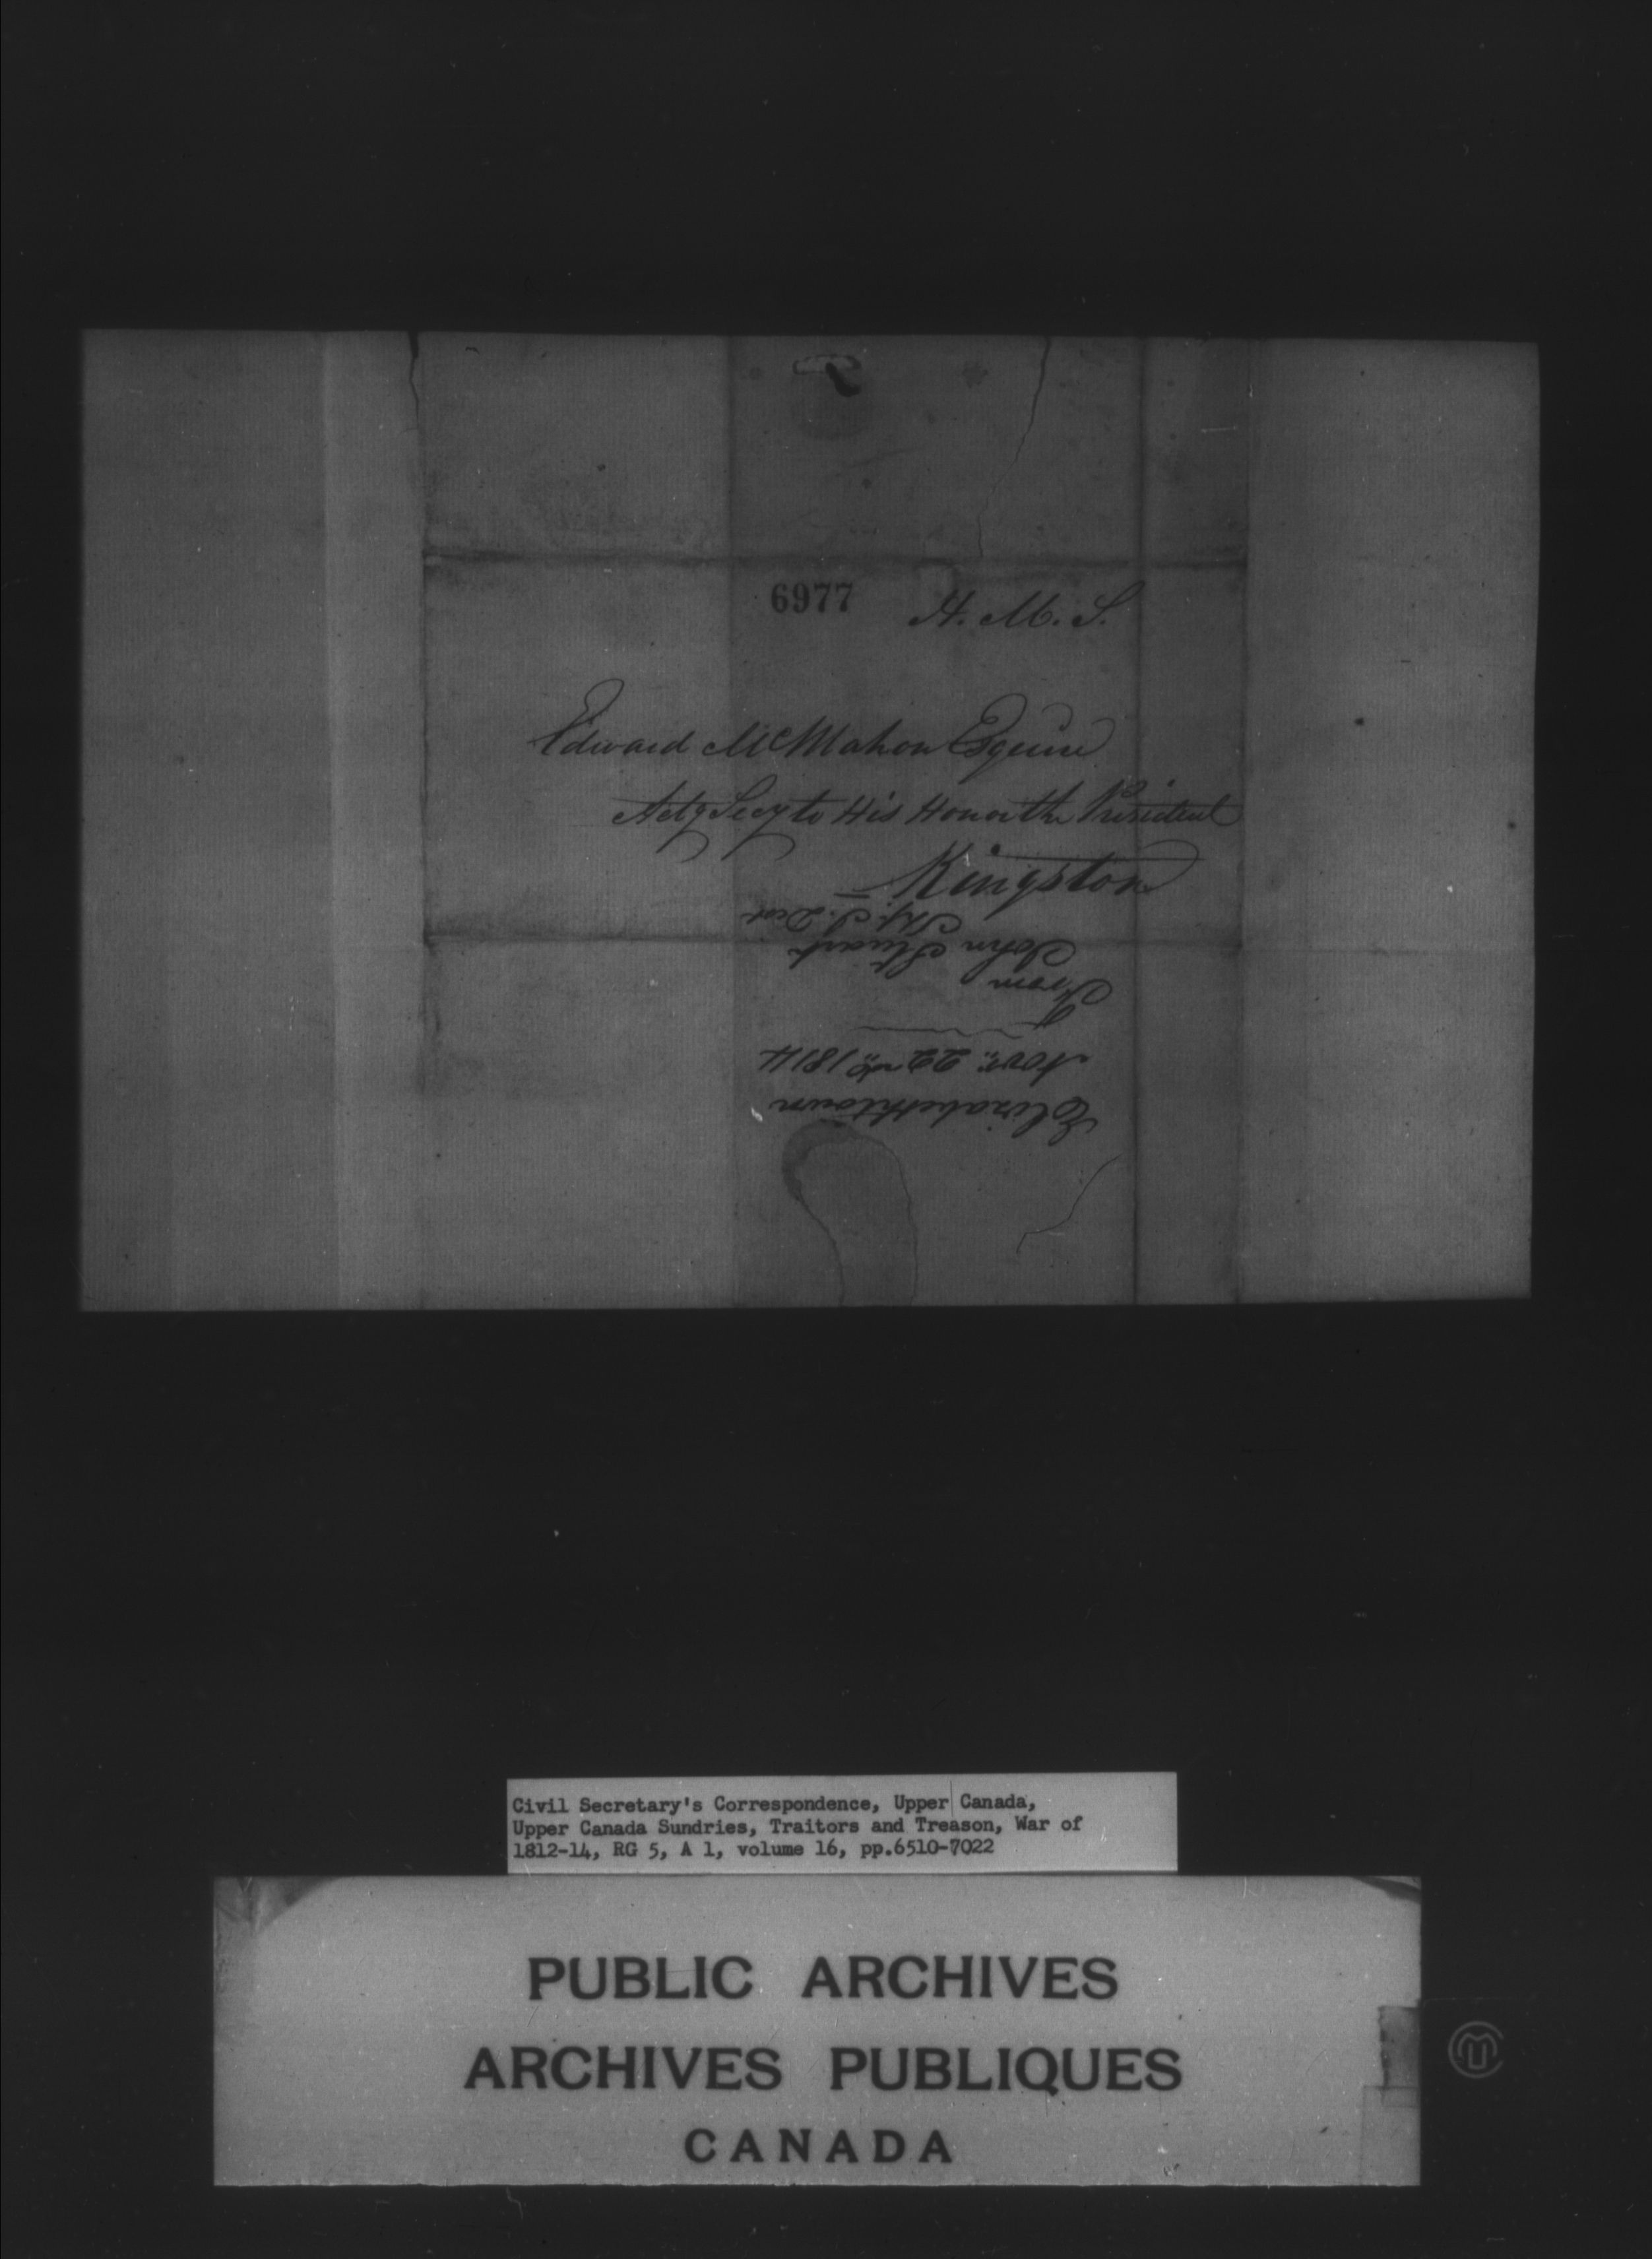 6977
H. M. S.
Edward McMahon Esquire
Actg Secy to His Honor the President
Kingston
Elizabethtown
Novr. 22nd 1814
From
John Stuart
Shf. J. Dist
Civil Secretary's Correspondence, Upper Canada,
Upper Canada Sundries, Traitors and Treason, War of
1812-14, RG 5, A 1, volume 16, pp.6510-7022
PUBLIC ARCHIVES
ARCHIVES PUBLIQUES
CANADA